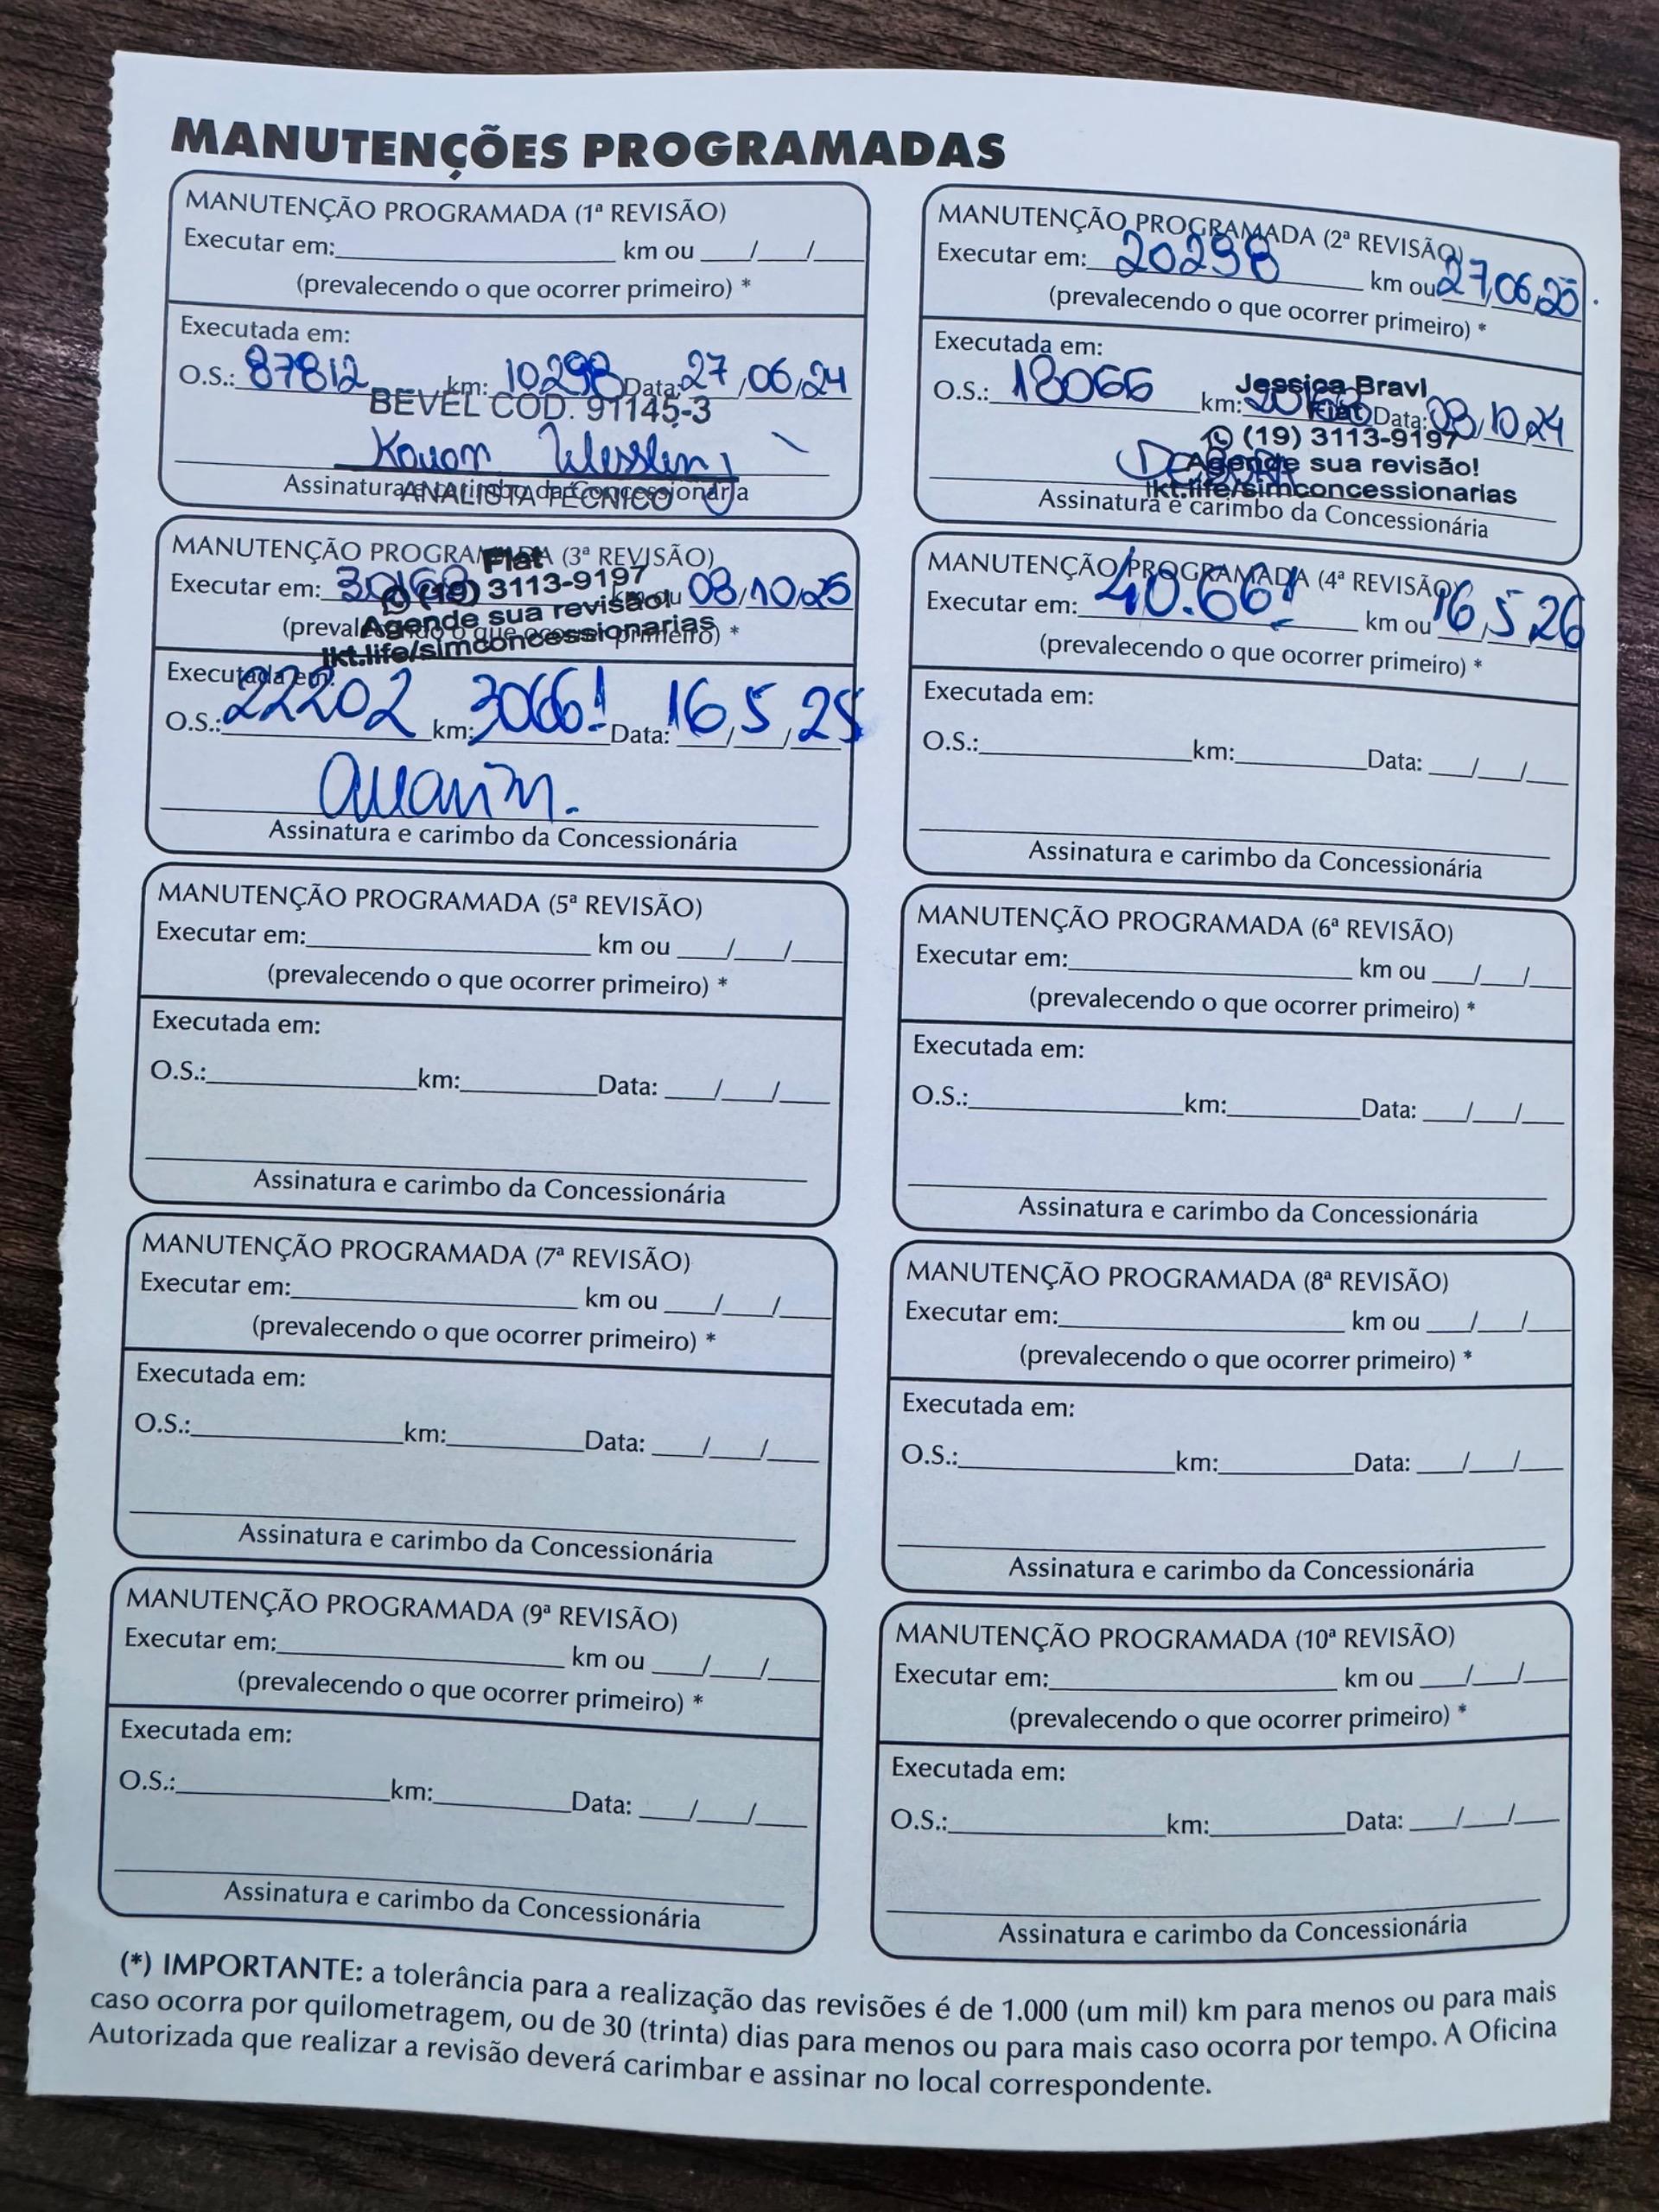 MANUTENÇÕES PROGRAMADAS
MANUTENÇÃO PROGRAMADA (1ª REVISÃO)
Executar em:__________ km ou ___/___/___
(prevalecendo o que ocorrer primeiro) *
Executada em:
O.S.: 87812 km: 10298 Data: 27/06/24
BEVEL COD. 91145-3
ANALISTA TÉCNICO
Assinatura e carimbo da Concessionária
MANUTENÇÃO PROGRAMADA (2ª REVISÃO)
Executar em: 20298 km ou 27/06/25
(prevalecendo o que ocorrer primeiro) *
Executada em:
O.S.: 18066 km: Data: 08/10/24
Jessica Bravi
Fiat
(19) 3113-9197
Agende sua revisão!
lkt.life/simconcessionarias
Assinatura e carimbo da Concessionária
MANUTENÇÃO PROGRAMADA (3ª REVISÃO)
Executar em: km ou 08/10/25
Fiat
(19) 3113-9197
Agende sua revisão!
lkt.life/simconcessionarias
(prevalecendo o que ocorrer primeiro) *
Executada em:
O.S.: 22202 km: 30661 Data: 16/5/25
Assinatura e carimbo da Concessionária
MANUTENÇÃO PROGRAMADA (4ª REVISÃO)
Executar em: 40.661 km ou 16/5/26
(prevalecendo o que ocorrer primeiro) *
Executada em:
O.S.:__________ km:__________ Data: ___/___/___
Assinatura e carimbo da Concessionária
MANUTENÇÃO PROGRAMADA (5ª REVISÃO)
Executar em:__________ km ou ___/___/___
(prevalecendo o que ocorrer primeiro) *
Executada em:
O.S.:__________ km:__________ Data: ___/___/___
Assinatura e carimbo da Concessionária
MANUTENÇÃO PROGRAMADA (6ª REVISÃO)
Executar em:__________ km ou ___/___/___
(prevalecendo o que ocorrer primeiro) *
Executada em:
O.S.:__________ km:__________ Data: ___/___/___
Assinatura e carimbo da Concessionária
MANUTENÇÃO PROGRAMADA (7ª REVISÃO)
Executar em:__________ km ou ___/___/___
(prevalecendo o que ocorrer primeiro) *
Executada em:
O.S.:__________ km:__________ Data: ___/___/___
Assinatura e carimbo da Concessionária
MANUTENÇÃO PROGRAMADA (8ª REVISÃO)
Executar em:__________ km ou ___/___/___
(prevalecendo o que ocorrer primeiro) *
Executada em:
O.S.:__________ km:__________ Data: ___/___/___
Assinatura e carimbo da Concessionária
MANUTENÇÃO PROGRAMADA (9ª REVISÃO)
Executar em:__________ km ou ___/___/___
(prevalecendo o que ocorrer primeiro) *
Executada em:
O.S.:__________ km:__________ Data: ___/___/___
Assinatura e carimbo da Concessionária
MANUTENÇÃO PROGRAMADA (10ª REVISÃO)
Executar em:__________ km ou ___/___/___
(prevalecendo o que ocorrer primeiro) *
Executada em:
O.S.:__________ km:__________ Data: ___/___/___
Assinatura e carimbo da Concessionária
(*) IMPORTANTE: a tolerância para a realização das revisões é de 1.000 (um mil) km para menos ou para mais
caso ocorra por quilometragem, ou de 30 (trinta) dias para menos ou para mais caso ocorra por tempo. A Oficina
Autorizada que realizar a revisão deverá carimbar e assinar no local correspondente.